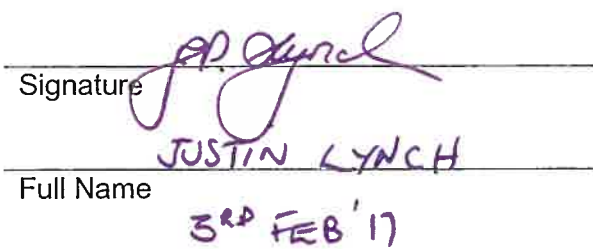 J.P. Lynch
Signature
JUSTIN LYNCH
Full Name
3RD FEB '17